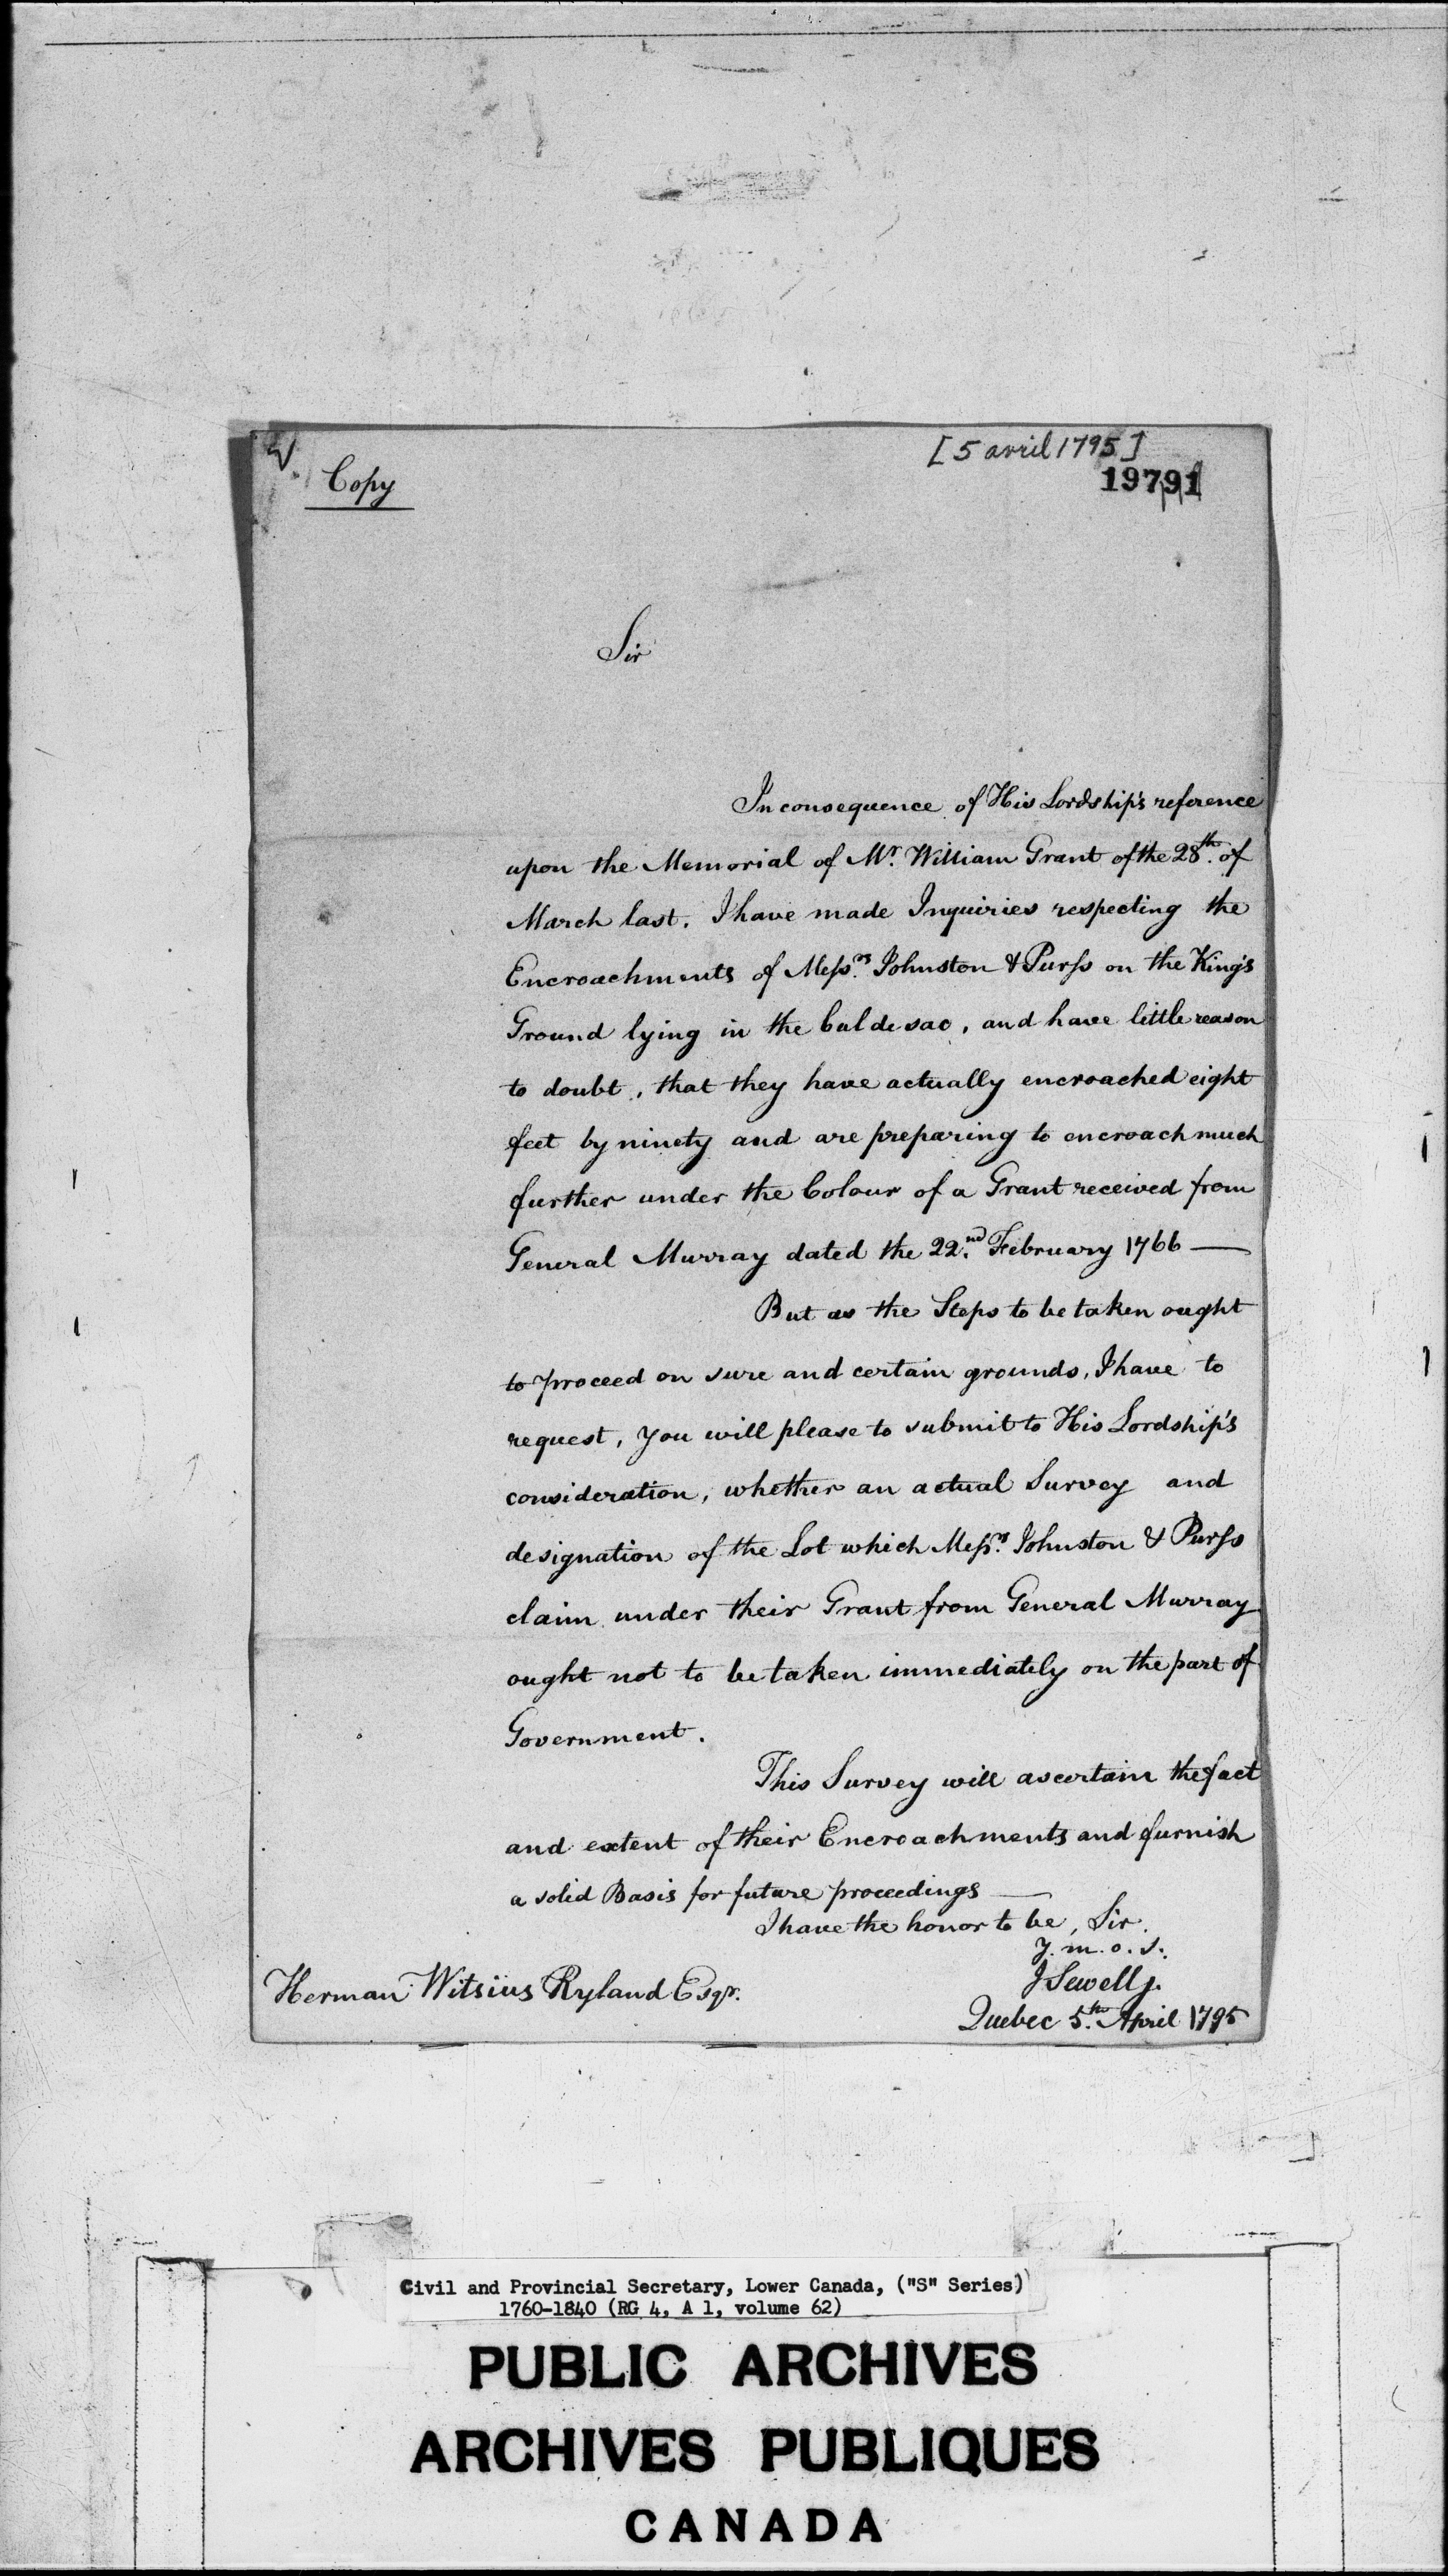 [5 avril 1795]
Copy
19791
Sir
In consequence of His Lordship's reference
upon the Memorial of Mr. William Grant of the 28th. of
March last. I have made Inquiries respecting the
Encroachments of Messrs. Johnston & Purss on the King's
Ground lying in the Cul de sac, and have little reason
to doubt, that they have actually encroached eight
feet by ninety and are preparing to encroach much
further under the Colour of a Grant received from
General Murray dated the 22.nd February 1766 —
But as the Steps to be taken ought
to proceed on sure and certain grounds, I have to
request, you will please to submit to His Lordship's
consideration, whether an actual Survey and
designation of the Lot which Messrs. Johnston & Purss
claim under their Grant from General Murray
ought not to be taken immediately on the part of
Government.
This Survey will ascertain the fact
and extent of their Encroachments and furnish
a solid Basis for future proceedings —
I have the honor to be, Sir.
y. m. o. s.
J Sewell j.
Herman Witsius Ryland Esqr.
Quebec 5.th April 1795
Civil and Provincial Secretary, Lower Canada, ("S" Series)
1760-1840 (RG 4, A 1, volume 62)
PUBLIC ARCHIVES
ARCHIVES PUBLIQUES
CANADA